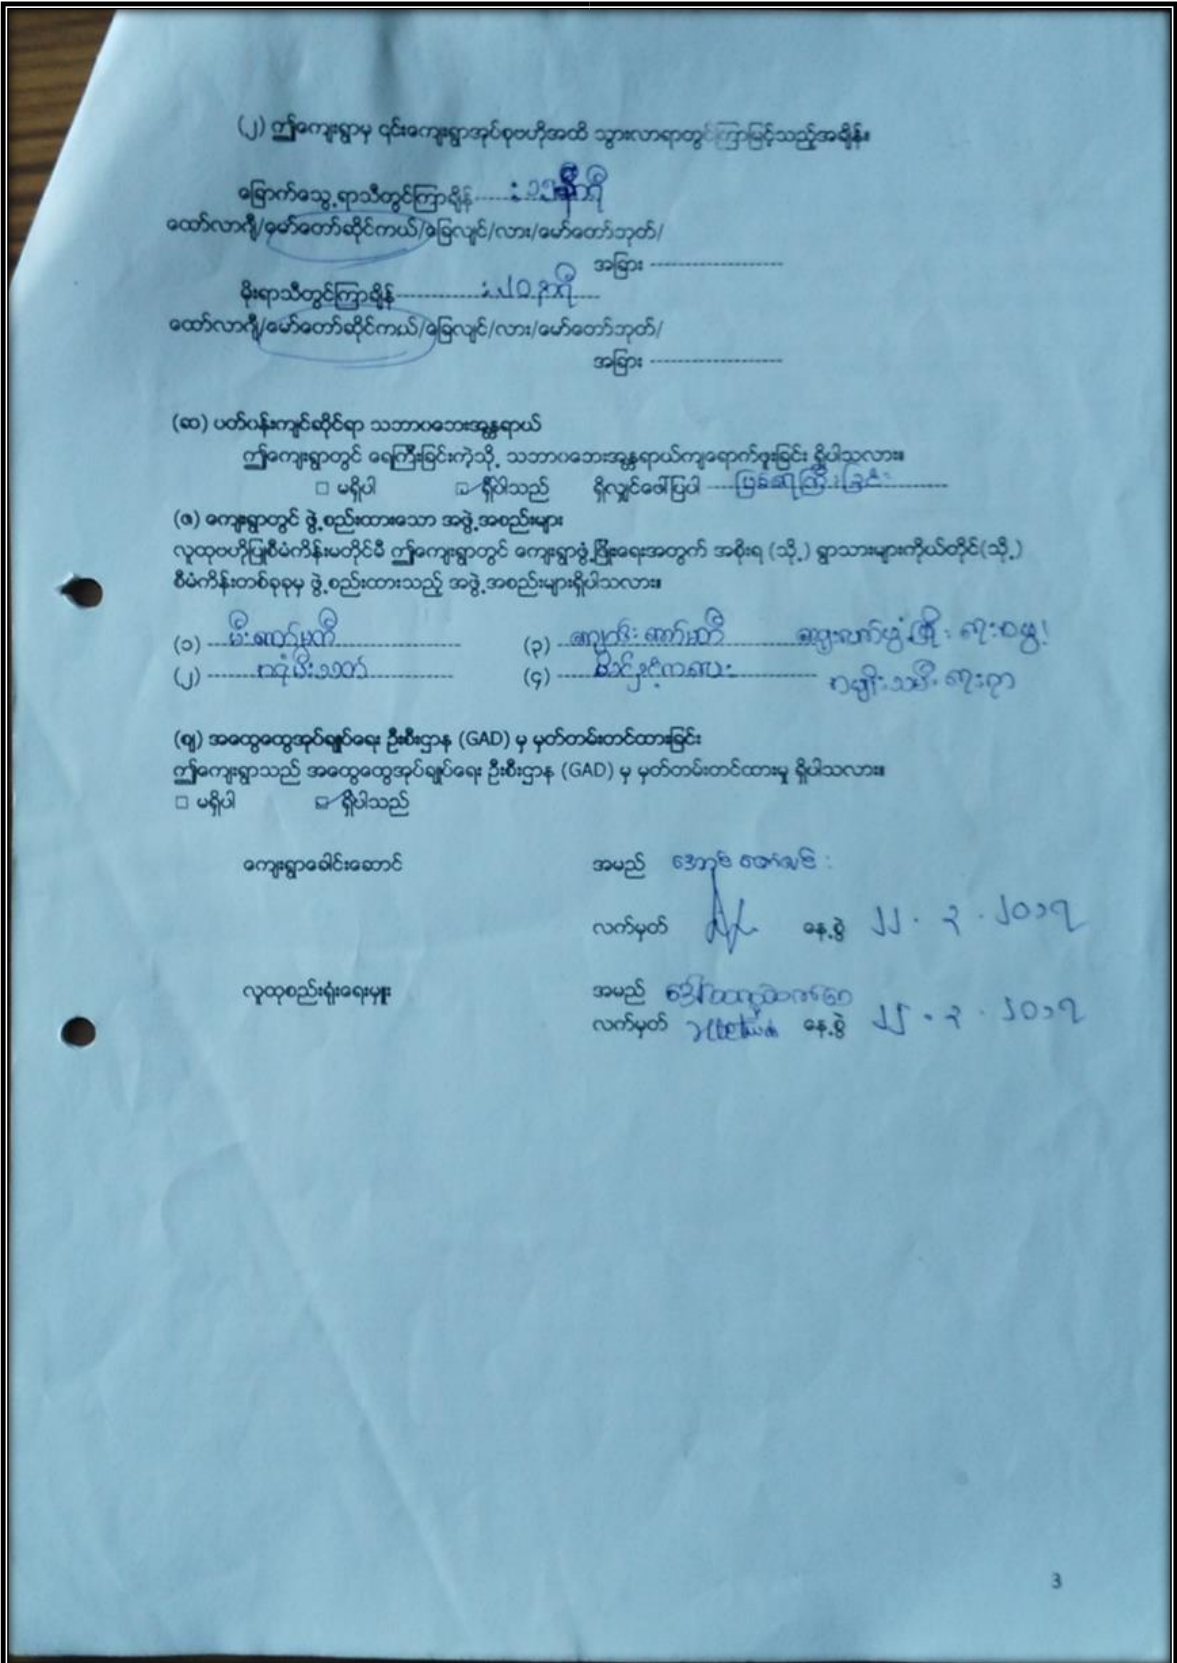 (၂) ဤကျေးရွာမှ ၎င်းကျေးရွာအုပ်စုဗဟိုအထိ သွားလာရာတွင်ကြာမြင့်သည့်အချိန်။
ခြောက်သွေ့ရာသီတွင်ကြာချိန် နာရီ
ထော်လာဂျီ/မော်တော်ဆိုင်ကယ်/ခြေလျင်/လား/မော်တော်ဘုတ်/
အခြား
မိုးရာသီတွင်ကြာချိန် း၂၀ နာရီ
ထော်လာဂျီ/မော်တော်ဆိုင်ကယ်/ခြေလျင်/လား/မော်တော်ဘုတ်/
အခြား
(ဆ) ပတ်ဝန်းကျင်ဆိုင်ရာ သဘာဝဘေးအန္တရာယ်
ဤကျေးရွာတွင် ရေကြီးခြင်းကဲ့သို့ သဘာဝဘေးအန္တရာယ်ကျရောက်ဖူးခြင်း ရှိပါသလား။
□ မရှိပါ ☑ ရှိပါသည် ရှိလျှင်ဖေါ်ပြပါ မြစ်ရေကြီးခြင်း
(ဇ) ကျေးရွာတွင် ဖွဲ့စည်းထားသော အဖွဲ့အစည်းများ
လူထုဗဟိုပြုစီမံကိန်းမတိုင်မီ ဤကျေးရွာတွင် ကျေးရွာဖွံ့ဖြိုးရေးအတွက် အစိုးရ (သို့) ရွာသားများကိုယ်တိုင်(သို့)
စီမံကိန်းတစ်ခုခုမှ ဖွဲ့စည်းထားသည့် အဖွဲ့အစည်းများရှိပါသလား။
(၁) မီးကော်မတီ (၃) ကျောင်းကော်မတီ
(၂) အရံမီးသတ် (၄) မိခင်နှင့်ကလေး အမျိုးသမီးရေးရာ
(ဈ) အထွေထွေအုပ်ချုပ်ရေး ဦးစီးဌာန (GAD) မှ မှတ်တမ်းတင်ထားခြင်း
ဤကျေးရွာသည် အထွေထွေအုပ်ချုပ်ရေး ဦးစီးဌာန (GAD) မှ မှတ်တမ်းတင်ထားမှု ရှိပါသလား။
□ မရှိပါ ☑ ရှိပါသည်
ကျေးရွာခေါင်းဆောင် အမည်
လက်မှတ် နေ့စွဲ ၂၂ . ၃ . ၂၀၁၇
လူထုစည်းရုံးရေးမှူး အမည်
လက်မှတ် နေ့စွဲ ၂၂ . ၃ . ၂၀၁၇
3